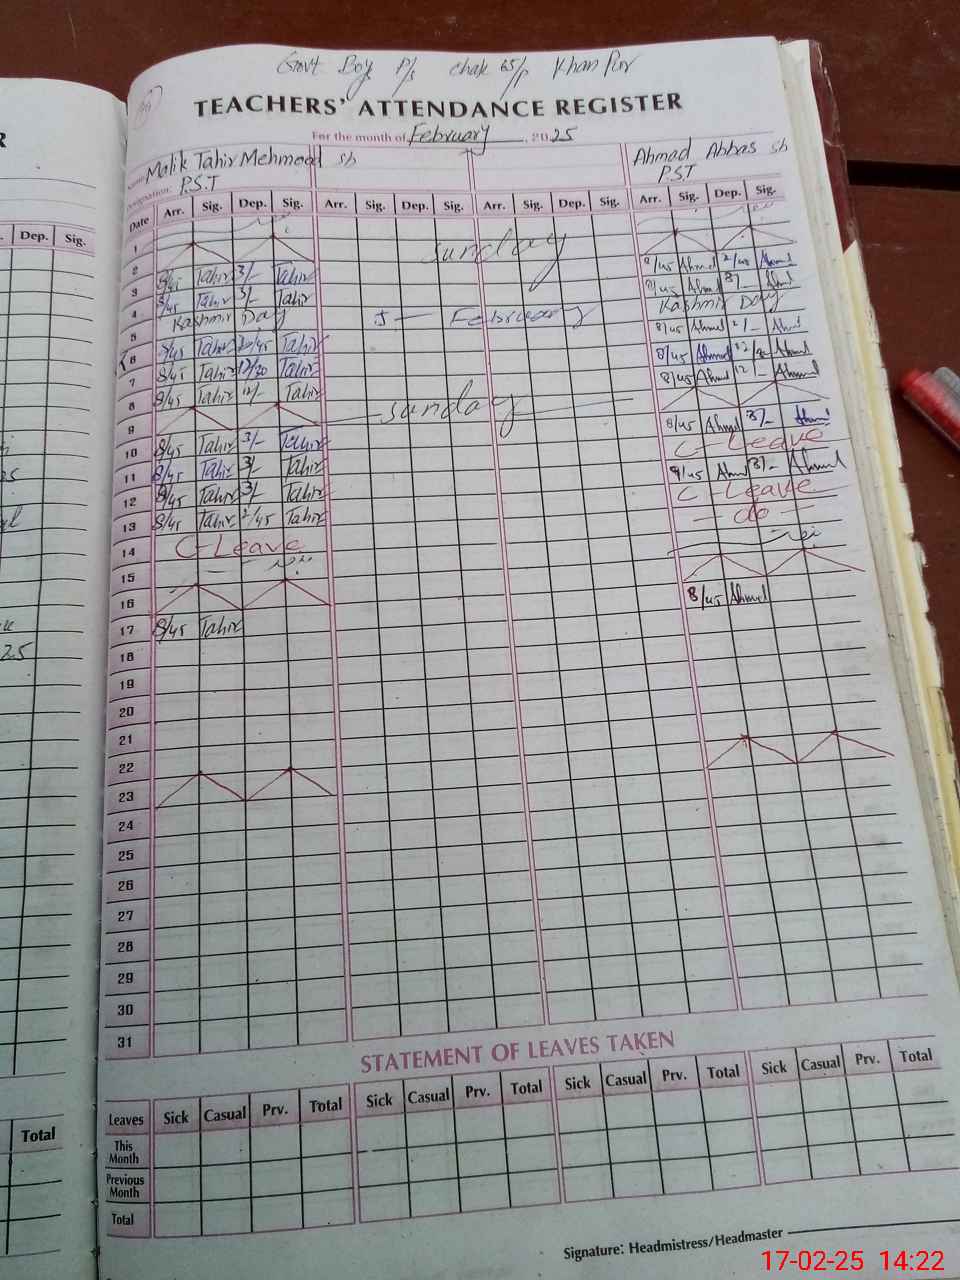 Govt Boys P/s chak 65/P Khan Pur
TEACHERS' ATTENDANCE REGISTER
For the month of February 2025
Name Malik Tahir Mehmood sb Ahmad Abbas sb
Designation: P.S.T P.S.T
Date Arr. Sig. Dep. Sig. Arr. Sig. Dep. Sig. Arr. Sig. Dep. Sig. Arr. Sig. Dep. Sig.
1
2 sunday
3 8/45 Tahir 3/- Tahir 8/45 Ahmd 2/40 Ahmd
4 8/45 Tahir 3/- Tahir 8/45 Ahmd 3/- Ahmd
5 Kashmir Day 5 — February Kashmir Day
6 8/45 Tahir 2/45 Tahir 8/45 Ahmd 2/- Ahmd
7 8/45 Tahir 12/20 Tahir 8/45 Ahmd Ahmd
8 8/45 Tahir 12/- Tahir 8/45 Ahmd 12/- Ahmd
9 sunday
10 8/45 Tahir 3/- Tahir 8/45 Ahmd 3/- Ahmd
11 8/45 Tahir 3/- Tahir C-Leave
12 8/45 Tahir 3/- Tahir 8/45 Ahmd 3/- Ahmd
13 8/45 Tahir 2/45 Tahir C-Leave
14 C-Leave — do —
15
16
17 8/45 Tahir 8/45 Ahmd
18
19
20
21
22
23
24
25
26
27
28
29
30
31
STATEMENT OF LEAVES TAKEN
Leaves Sick Casual Prv. Total Sick Casual Prv. Total Sick Casual Prv. Total Sick Casual Prv. Total
This Month
Previous Month
Total
Signature: Headmistress/Headmaster
17-02-25 14:22
R
Dep. Sig.
Total